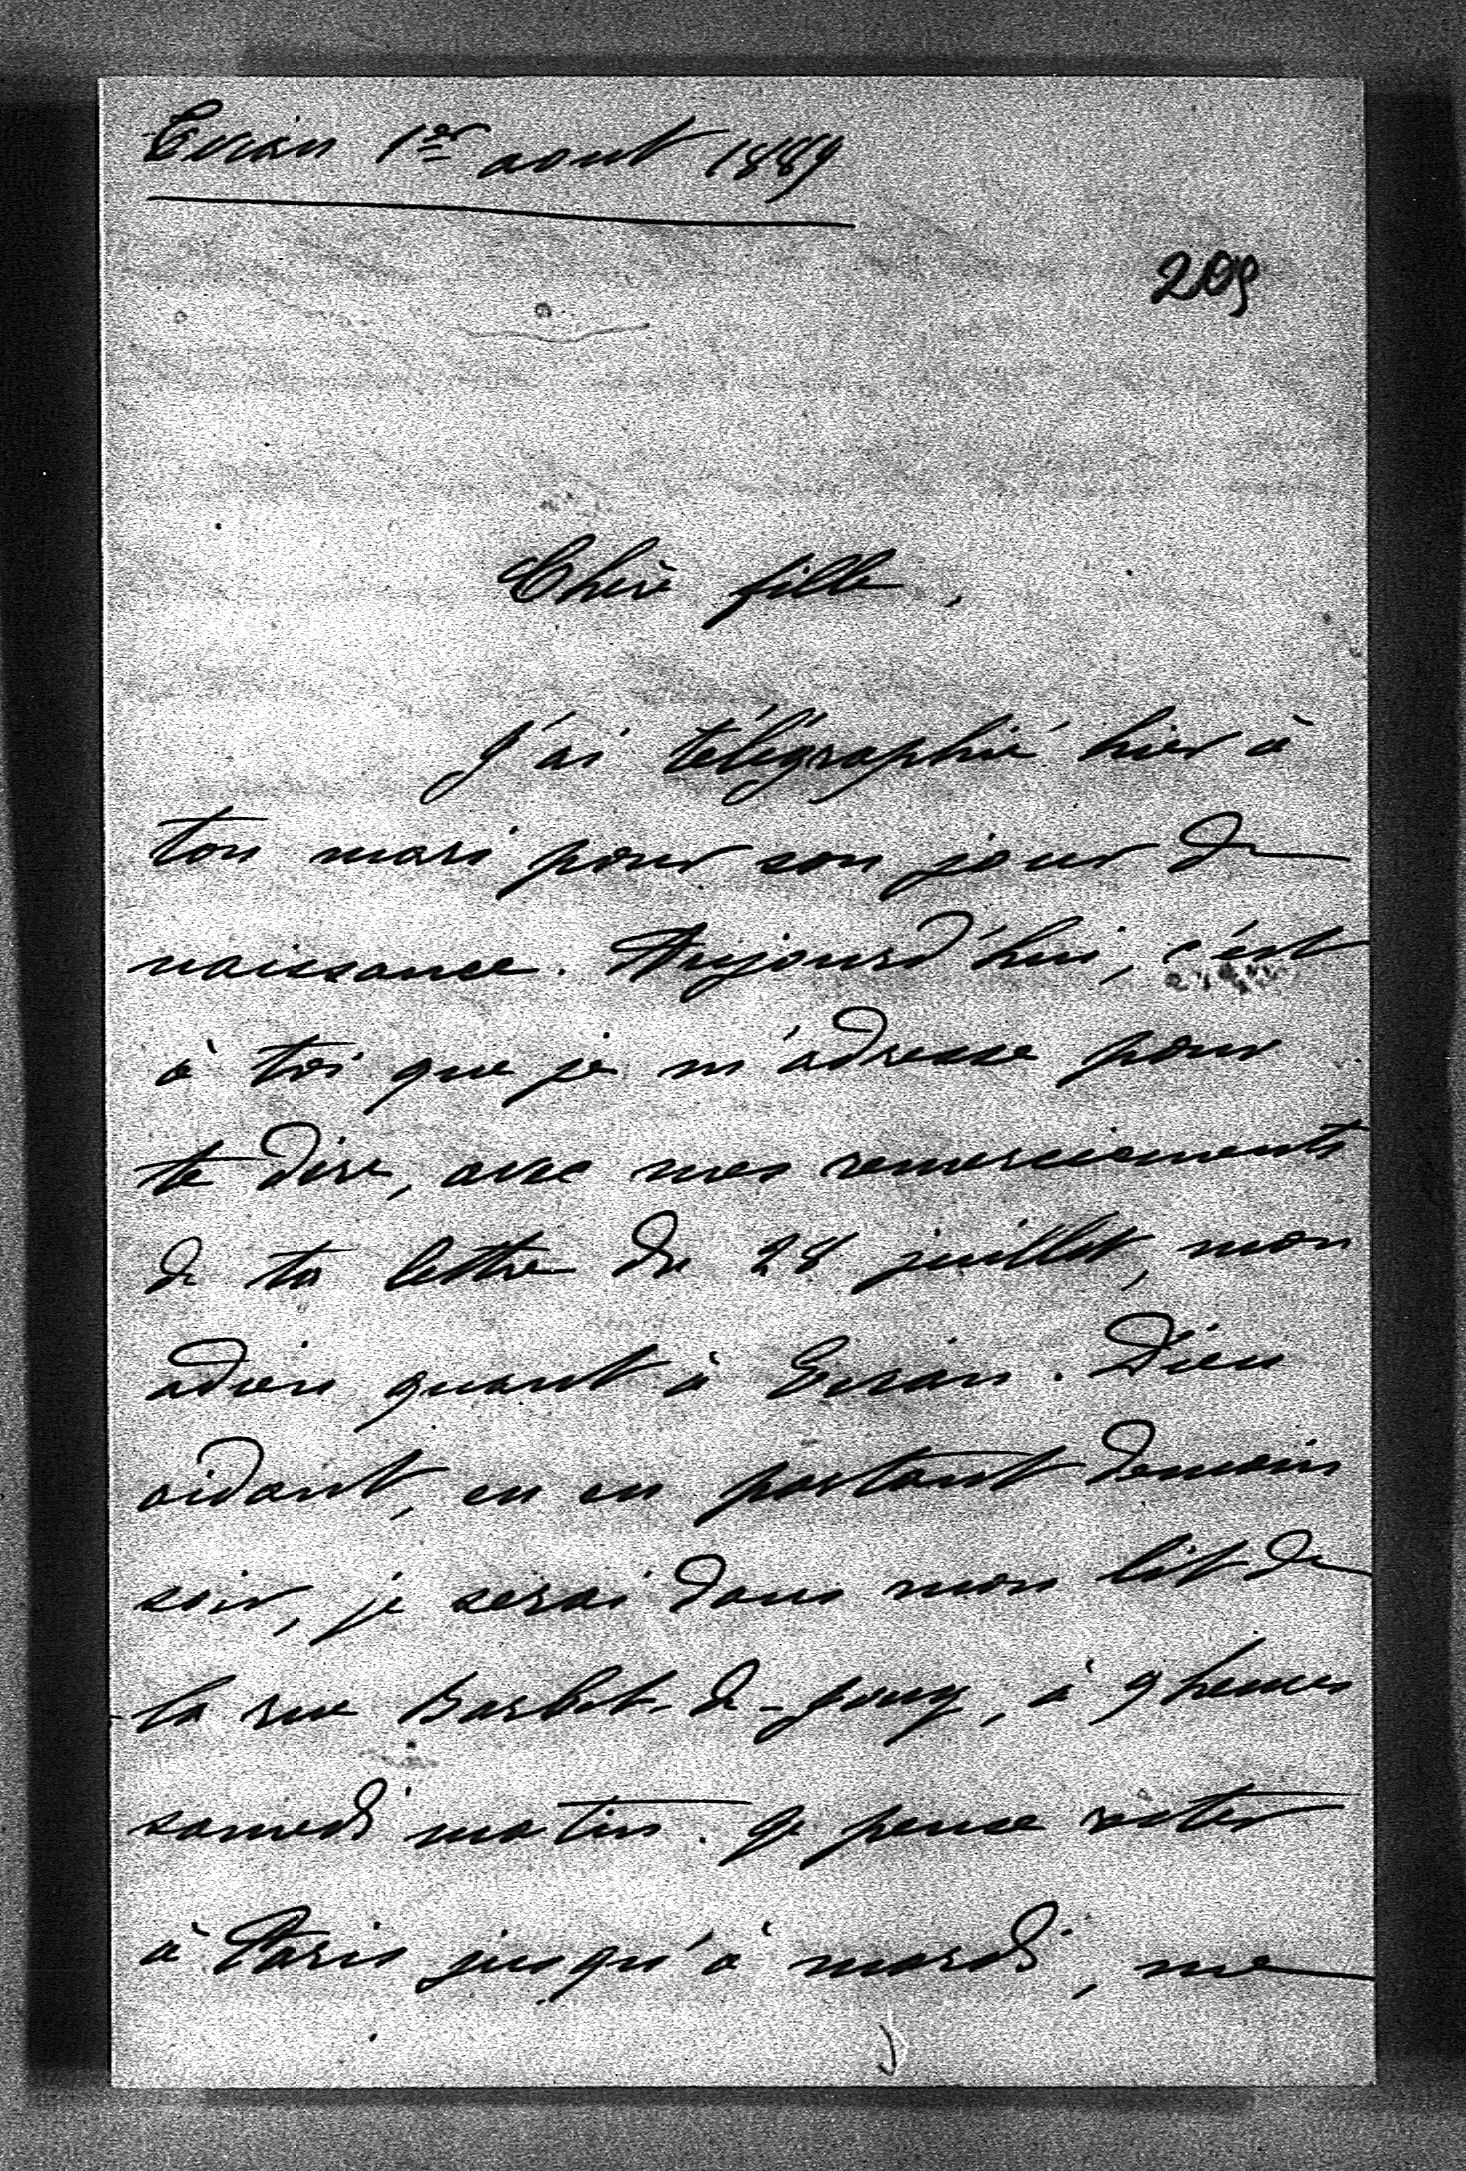 Evian 1er aout 1889
209
Chère fille,
J'ai télégraphié hier à
ton mari pour son jour de
naissance. Aujourd'hui, c'est
à toi que je m'adresse pour
te dire, avec mes remerciements
de ta lettre du 28 juillet, mon
adieu quant à Evian. Dieu
aidant, en en partant demain
soir, je serai dans mon lit de
la rue Barbet-de-Jouy, à 9 heures
samedi matin. Je pense rester
à Paris jusqu'à mardi, me